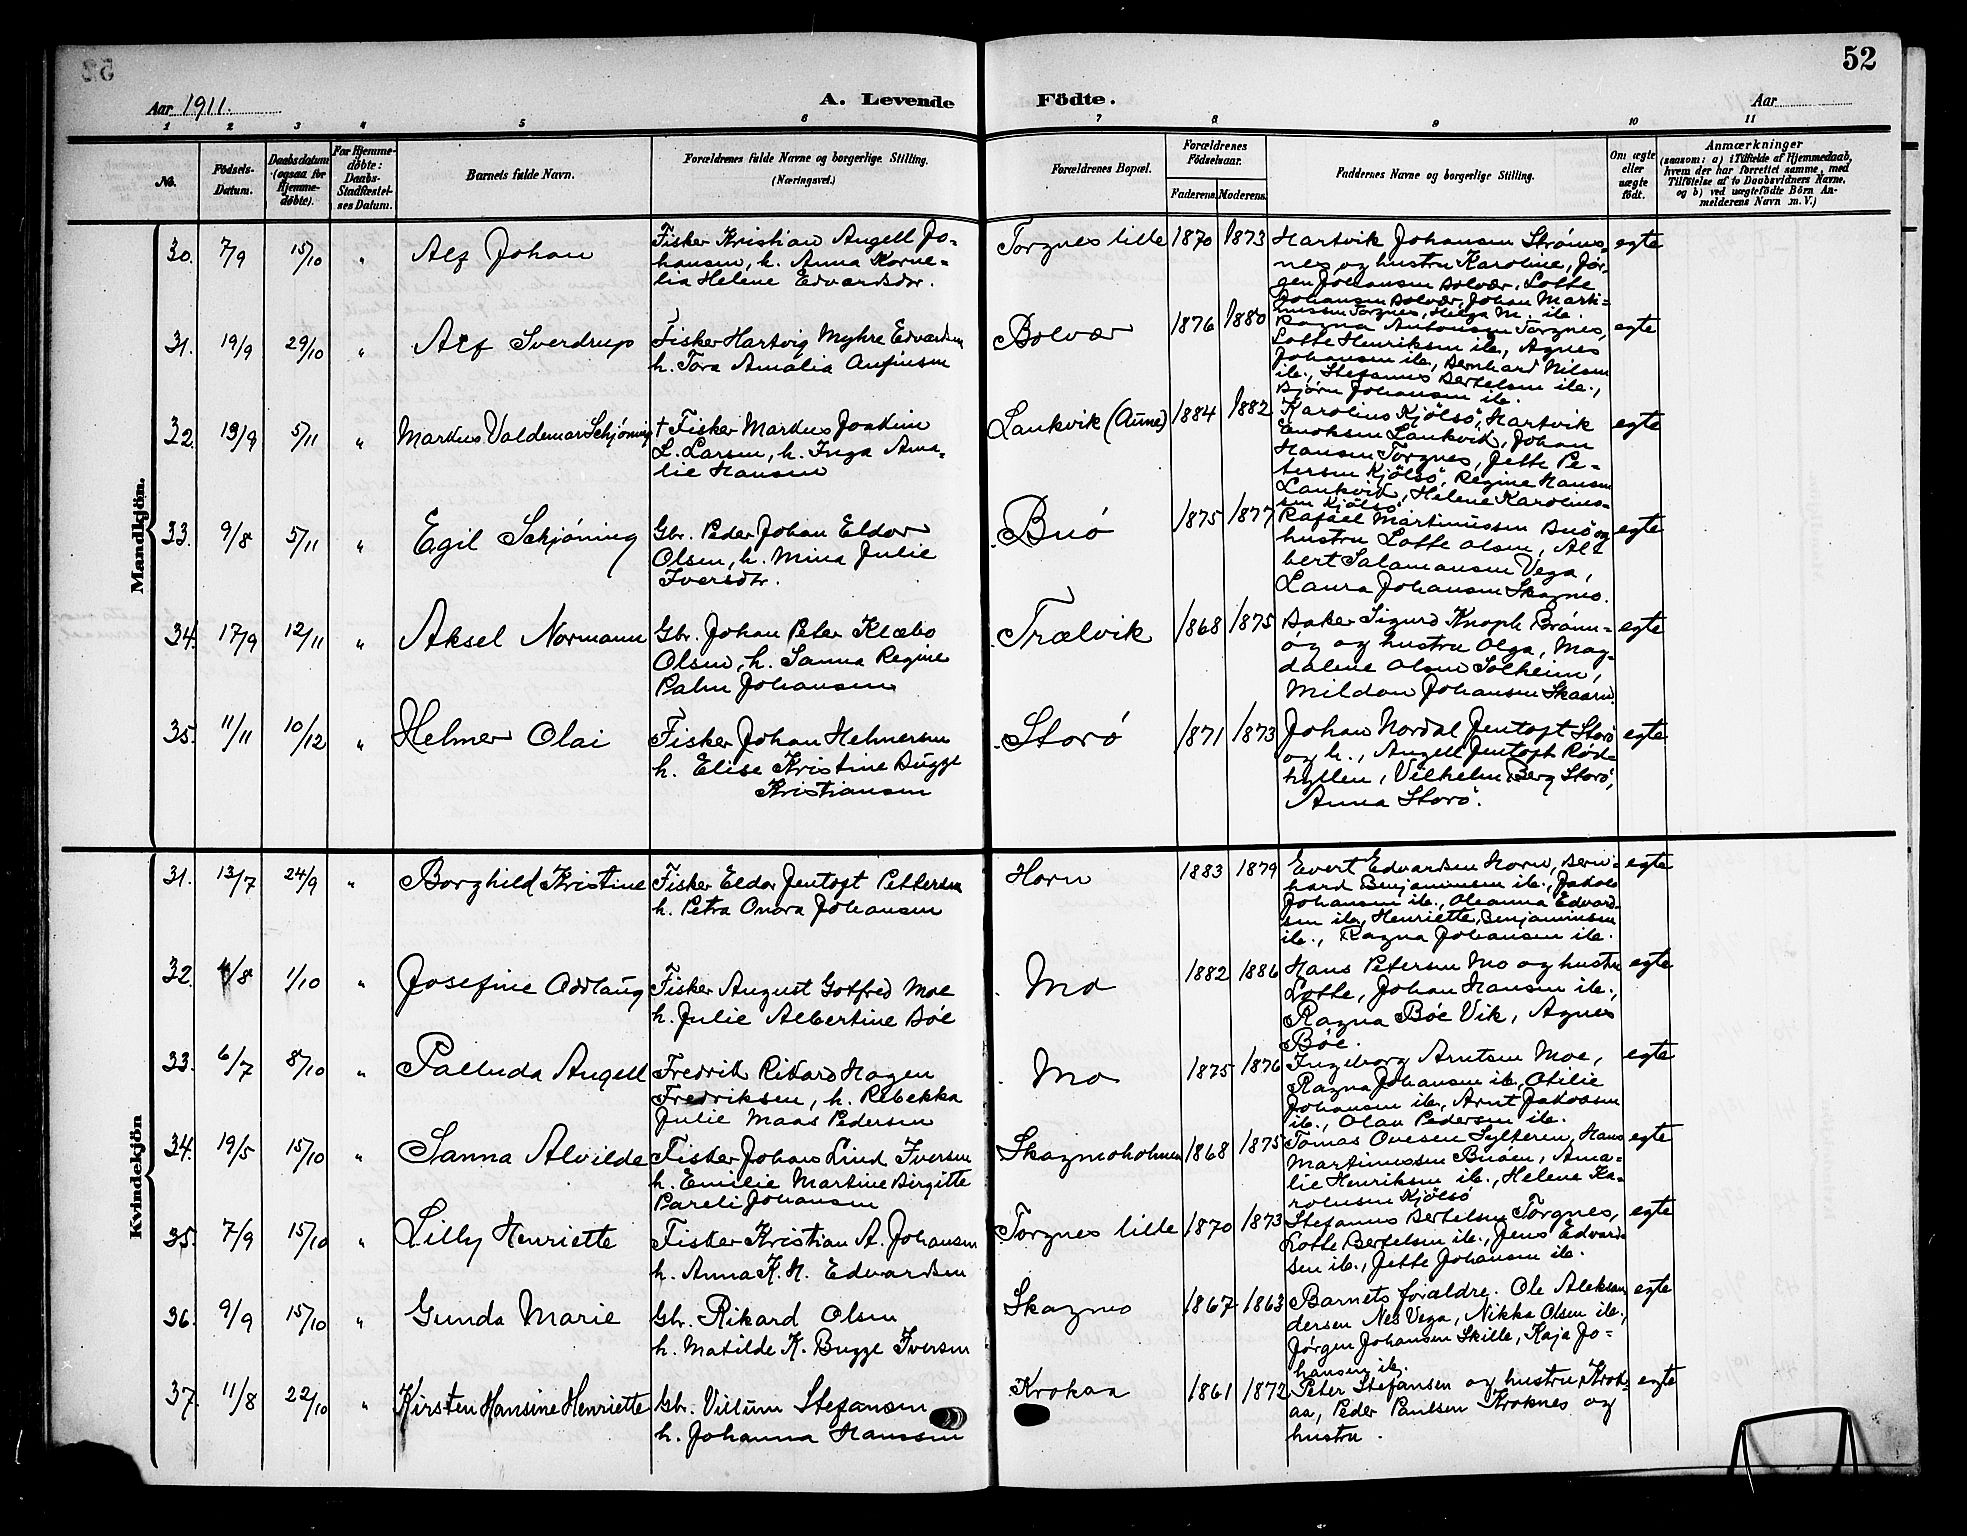 52
Aar 1911.
A. Levende Födte.
Aar
1 2 3 4 5 6 7 8 9 10 11
No.
Födsels-Datum.
Daabsdatum (ogsaa for Hjemme-döbte).
For Hjemme-döbte: Daabs-Stadfæstel-ses Datum.
Barnets fulde Navn.
Forældrenes fulde Navne og borgerlige Stilling. (Næringsvei.)
Forældrenes Bopæl.
Forældrenes Födselsaar.
Faderens. Moderens.
Faddernes Navne og borgerlige Stilling.
Om ægte eller uægte födt.
Anmærkninger
(saasom: a) i Tilfælde af Hjemmedaab, hvem der har forrettet samme, med Tilföielse af to Daabsvidners Navne, og b) ved uægtefödte Börn An-melderens Navn m. V.)
Mandkjön.
30. 7/9 15/10 " Alf Johan
Fisker Kristian Angell Jo-
hansen, h. Anna Korne-
lia Helene Edvardsdr.
Torgnes lille 1870 1873
Hartvik Johansen Strøms-
nes og hustru Karoline, Jør-
gen Johansen Bolvær, Lotte
Johansen Bolvær, Johan Marti-
nussen Torgnes, Helga M. ib.
egte
31. 19/9 29/10 " Alf Sverdrup
Fisker Hartvig Myhre Edvardsen
h. Tora Amalia Anfinsen
Bolvær 1876 1880
Ragna Antonsen Torgnes,
Lotte Henriksen ib., Agnes
Johansen ib., Bernhard Nilsen
ib., Stefanus Bertelsen ib.,
Bjørn Johansen ib.
egte
32. 19/9 5/11 " Markus Valdemar Schjöning
† Fisker Markus Joakim
L. Larsen, h. Inga Ama-
lie Hansen
Lankvik (Aune) 1884 1882
Karolius Kjölsö, Hartvik
Enoksen Lankvik, Johan
Hansen Torgnes, Jette Pe-
tersen Kjölsö, Regine Hansen
Lankvik, Helene Karolius-
sen Kjölsö
egte
33. 9/8 5/11 " Egil Schjöning
Gbr. Peder Johan Eldor
Olsen, h. Mina Julie
Iversdtr.
Buö 1875 1877
Rafael Martinussen Buö og
hustru Lotte Olsen, Al-
bert Salamonsen Vega,
Laura Johansen Skagmo.
egte
34. 17/9 12/11 " Aksel Normann
Gbr. Johan Peter Klæbo
Olsen, h. Sanna Regine
Palm Johansen
Trælvik 1868 1875
Baker Sigurd Knoph Brönn-
öy og hustru Olga, Mag-
dalene Olsen Solheim,
Mildan Johansen Skaarn
egte
35. 11/11 10/12 " Helmer Olai
Fisker Johan Helmersen
h. Elise Kristine Bugge
Kristiansen
Storö 1871 1873
Johan Nordal Jentoft Storö
og h., Angell Jentoft Röd-
hyllen, Vilhelm Berg Storö,
Anna Storö.
egte
Kvindekjön
31. 13/7 24/9 " Borghild Kristine
Fisker Eldor Jentoft Pettersen
h. Petra Onora Johansen
Horn 1883 1879
Evert Edvardsen Horn, Bern-
hard Benjaminsen ib., Jakob
Johansen ib., Oleanna Edvard-
sen ib., Henriette Benjaminsen
ib., Ragna Johansen ib.
egte
32. 4/8 1/10 " Josefine Oddlaug
Fisker August Gotfred Moe
h. Julie Albertine Böe
Mo 1882 1886
Hans Petersen Mo og hustru
Lotte, Johan Hansen ib.,
Ragna Böe Vik, Agnes
Böe.
egte
33. 6/7 8/10 " Palluda Angell
Fredrik Rikard Hagen
Fredriksen, h. Rebekka
Julie Maas Pedersen
Mo 1875 1876
Ingeborg Arntsen Moe,
Ragna Johansen ib., Otilie
Johansen ib., Arnt Jakobsen
ib., Olav Pedersen ib.
egte
34. 19/5 15/10 " Sanna Alvilde
Fisker Johan Lind Iversen
h. Emilie Martine Birgitte
Pareli Johansen
Skagmoholmen 1868 1875
Tomas Ovesen Sylteren, Hans
Martinussen Buöen, Ama-
lie Henriksen ib., Helene Ka-
rolusen Kjölsö
egte
35. 7/9 15/10 " Lilly Henriette
Fisker Kristian A. Johansen
h. Anna K. H. Edvardsen
Torgnes lille 1870 1873
Stefanus Bertelsen Torgnes,
Lotte Bertelsen ib., Jens Edvard-
sen ib., Jette Johansen ib.
egte
36. 9/9 15/10 " Gunda Marie
Gbr. Rikard Olsen
h. Matilde K. Bugge Iversen
Skagmo 1867 1863
Barnets forældre. Ole Aleksan-
dersen Nes Vega, Nikka Olsen ib.,
Jørgen Johansen Skille, Kaja Jo-
hansen ib.
egte
37. 11/8 22/10 " Kirsten Hansine Henriette
Gbr. Villum Stefansen
h. Johanna Hanssen
Krokaa 1861 1872
Peter Stefansen og hustru Krok-
aa, Peder Paulsen Kroknes og
hustru.
egte